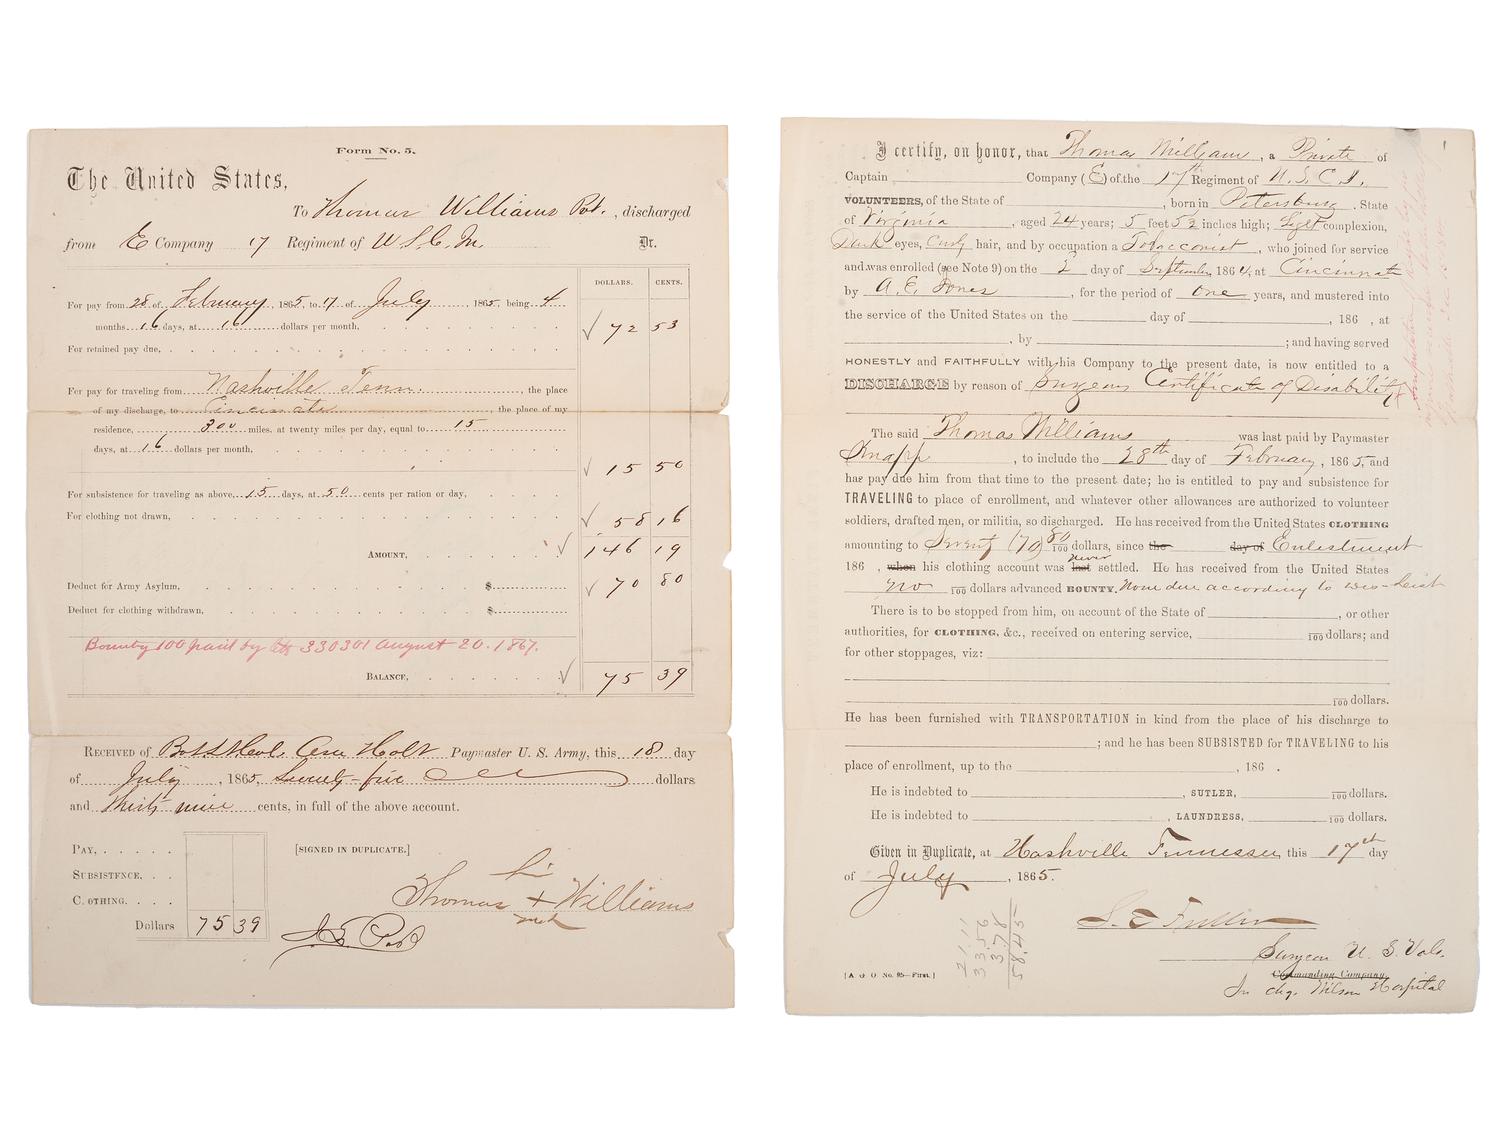 Form No. 5.
The United States,
To Thomas Williams Pvt., discharged
from E Company 17 Regiment of U S C In. Dr.
DOLLARS. CENTS.
For pay from 28 of February, 1865, to 17 of July, 1865, being 4
months 16 days, at 16 dollars per month, 72 53
For retained pay due,
For pay for traveling from Nashville Tenn., the place
of my discharge, to Cincinnati, the place of my
residence, 300 miles, at twenty miles per day, equal to 15
days, at 16 dollars per month,
15 50
For subsistence for traveling as above, 15 days, at 50 cents per ration or day,
For clothing not drawn, 58 16
AMOUNT, 146 19
Deduct for Army Asylum, $ 70 80
Deduct for clothing withdrawn, $
Bounty 100 paid by 330301 August 20. 1867.
BALANCE, 75 39
RECEIVED of Holt Paymaster U. S. Army, this 18 day
of July, 1865, Seventy-five dollars
and thirty nine cents, in full of the above account.
PAY,
SUBSISTENCE,
CLOTHING.
Dollars 75 39
[SIGNED IN DUPLICATE.]
his
Thomas + Williams
mark
I certify, on honor, that Thomas William, a Private of
Captain Company (E) of the 17th Regiment of U. S. C. I.
VOLUNTEERS, of the State of , born in Petersburg, State
of Virginia, aged 24 years; 5 feet 5½ inches high; Light complexion,
Dark eyes, Curly hair, and by occupation a Tobacconist, who joined for service
and was enrolled (see Note 9) on the 2 day of September, 1864, at Cincinnati
by A. E. Jones, for the period of one years, and mustered into
the service of the United States on the day of , 186 , at
, by ; and having served
HONESTLY and FAITHFULLY with his Company to the present date, is now entitled to a
DISCHARGE by reason of Surgeons Certificate of Disability
The said Thomas Williams was last paid by Paymaster
Knapp, to include the 28th day of February, 1865, and
has pay due him from that time to the present date; he is entitled to pay and subsistence for
TRAVELING to place of enrollment, and whatever other allowances are authorized to volunteer
soldiers, drafted men, or militia, so discharged. He has received from the United States CLOTHING
amounting to Seventy (70) 80/100 dollars, since the day of Enlestment
186 , when his clothing account was last never settled. He has received from the United States
no /100 dollars advanced BOUNTY. None due according to
There is to be stopped from him, on account of the State of , or other
authorities, for CLOTHING, &c., received on entering service, /100 dollars; and
for other stoppages, viz:
/100 dollars.
He has been furnished with TRANSPORTATION in kind from the place of his discharge to
; and he has been SUBSISTED for TRAVELING to his
place of enrollment, up to the , 186 .
He is indebted to , SUTLER, /100 dollars.
He is indebted to , LAUNDRESS, /100 dollars.
Given in Duplicate, at Nashville Tennessee this 17th day
of July, 1865.
Surgeon U. S. Vols.
[A G O No. 95—First.]
Commanding Company.
In chg. Wilson Hospital
21.11
33.56
3.78
58.45